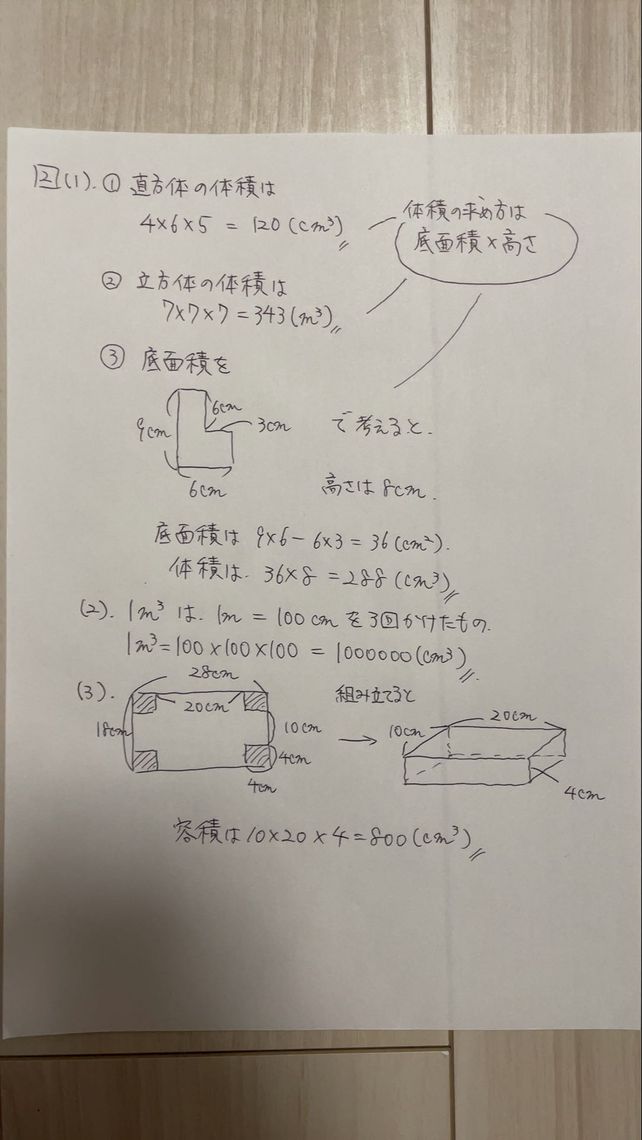 2 (1). ① 直方体の体積は
4×6×5 = 120 (cm³)
体積の求め方は
底面積×高さ
② 立方体の体積は
7×7×7 = 343 (m³)
③ 底面積を
9cm
6cm
3cm
6cm
で考えると.
高さは 8cm.
底面積は 9×6 - 6×3 = 36 (cm²).
体積は. 36×8 = 288 (cm³)
(2). 1m³ は. 1m = 100 cm を3回かけたもの.
1m³ = 100×100×100 = 1000000 (cm³)
(3).
28cm
20cm
18cm
10cm
4cm
4cm
組み立てると
→
20cm
10cm
4cm
容積は 10×20×4 = 800 (cm³)